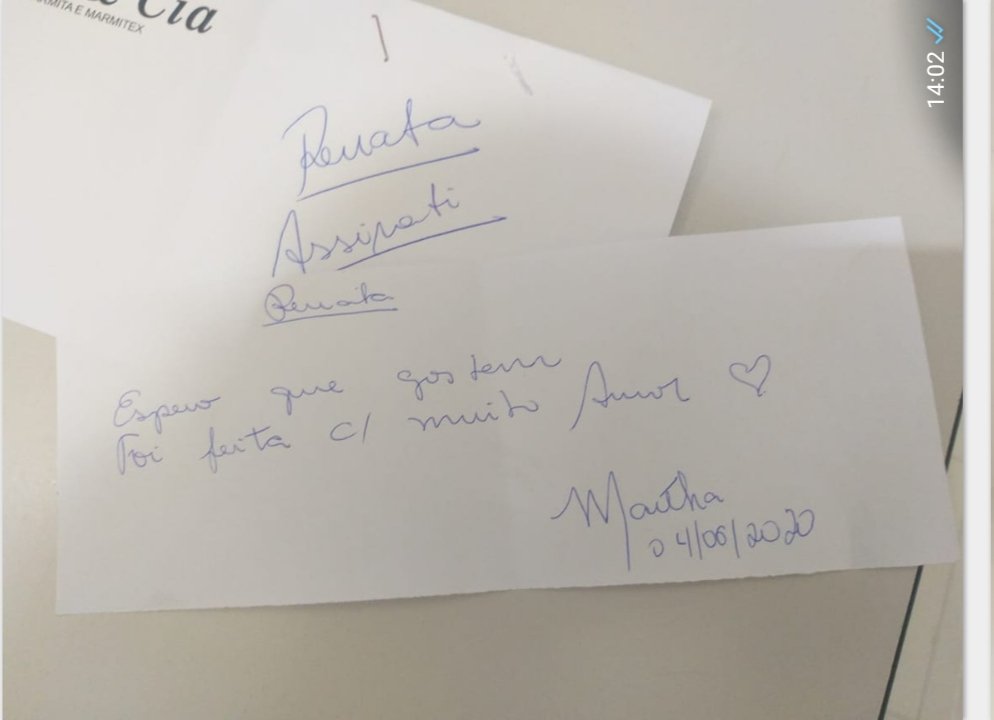 Cia
MARMITA E MARMITEX
Renata
Assirati
Renata
Espero que gostem
Foi feita c/ muito Amor ♡
Martha
04/06/2020
14:02